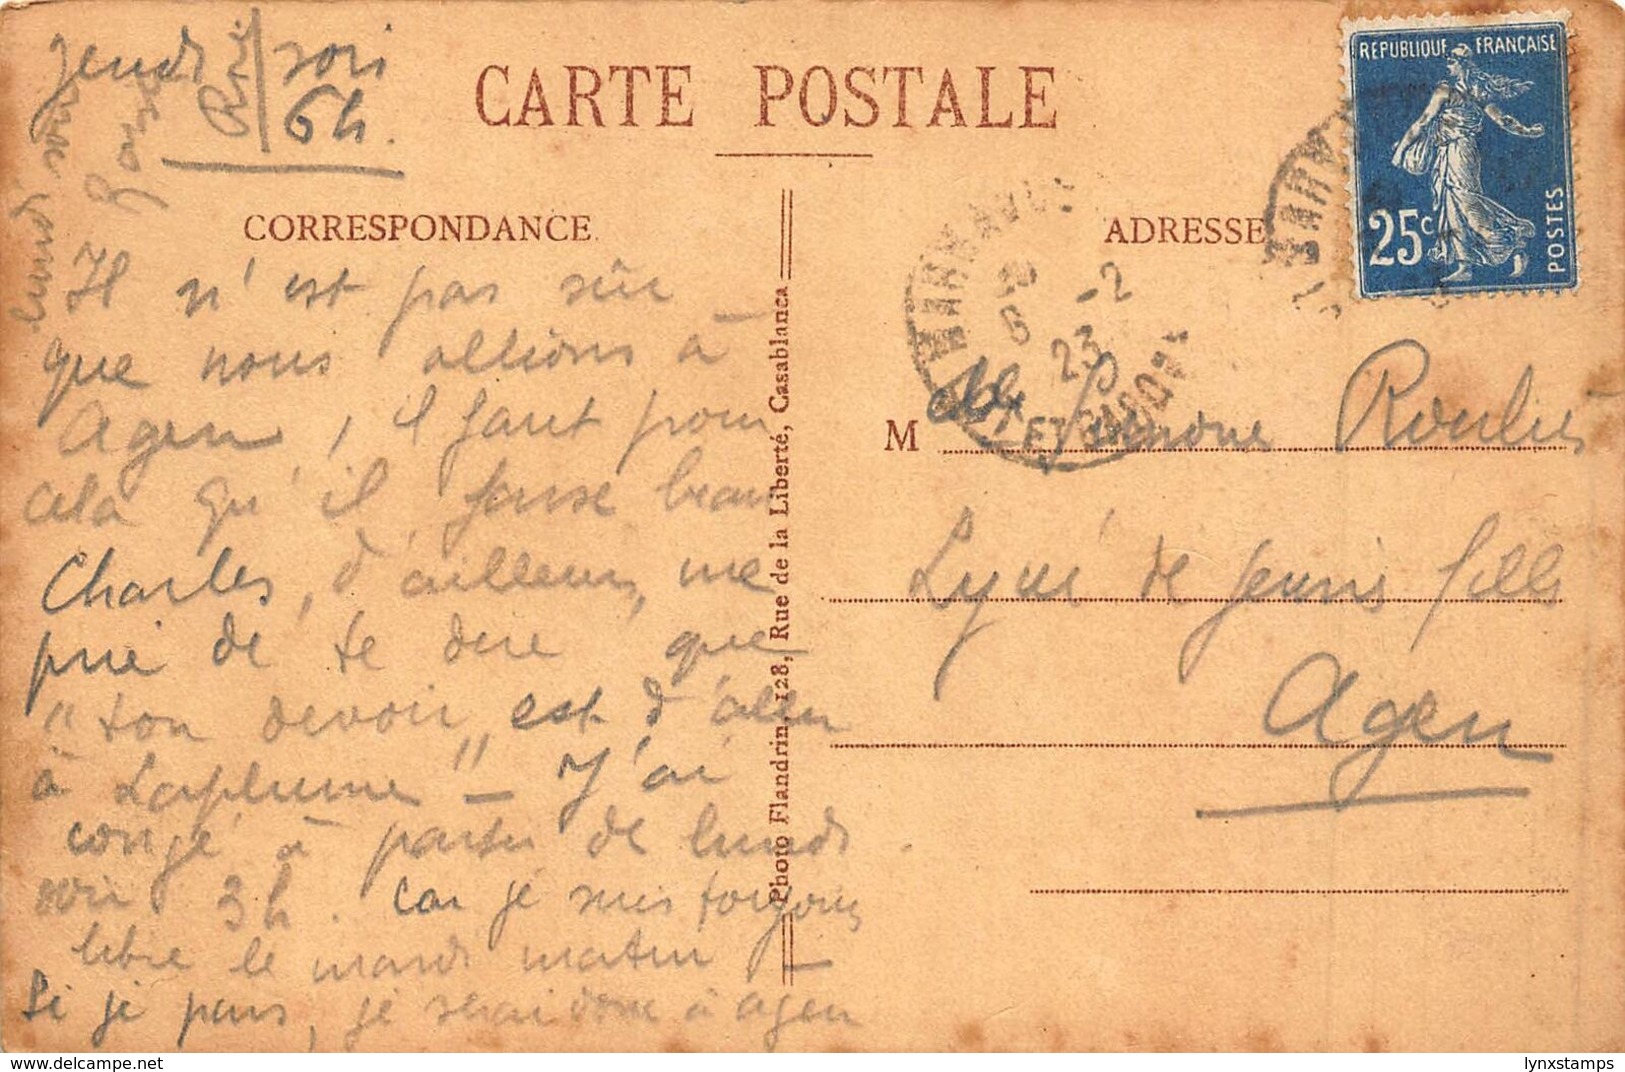 jeudi soir
6h.
CARTE POSTALE
REPUBLIQUE FRANÇAISE
25c
POSTES
CORRESPONDANCE
ADRESSE
Il n'est pas sûr
que nous allions à
Agen, il faut pour
cela qu'il fasse beau
Charles, d'ailleurs, me
prie de te dire que
"ton devoir est d'aller
à Laplume" – J'ai
congé à partir de lundi
soir 3h. car je suis toujours
libre le mardi matin –
Si je pars, je serai donc à Agen
lundi soir
MARMANDE
-2
23
LOT ET GARONNE
M Simone Roulies
Lycée de jeunes filles
Agen
Photo Flandrin, 128, Rue de la Liberté, Casablanca
delcampe.net
lynxstamps